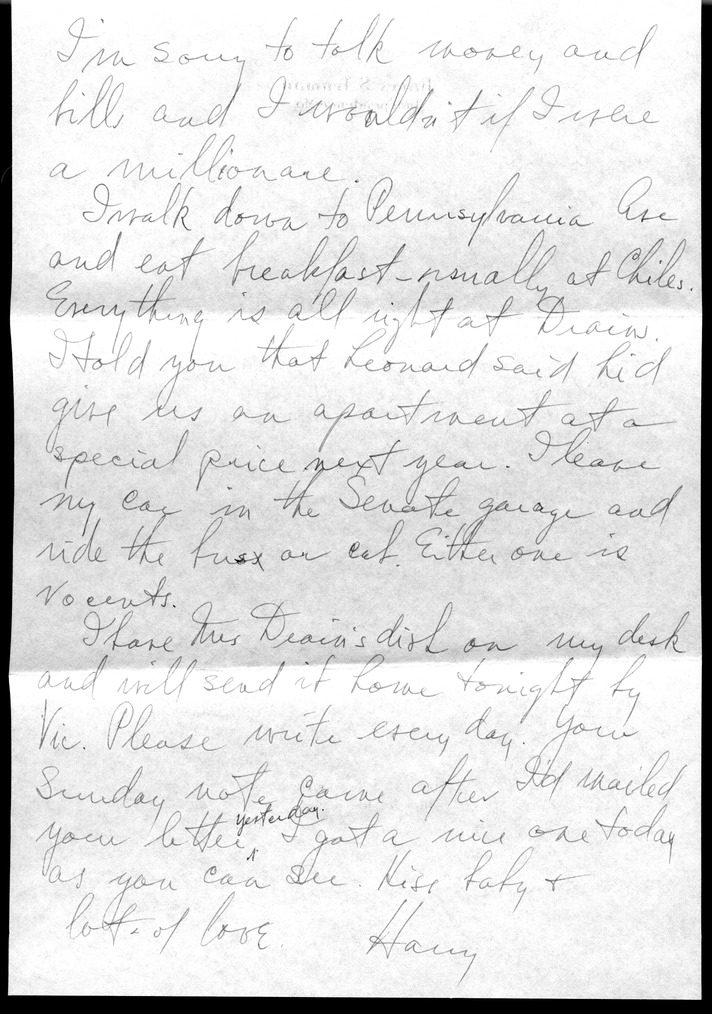 I'm sorry to talk money and
bills and I wouldn't if I were
a millionare.
I walk down to Pennsylvania Ave
and eat breakfast - usually at Childs.
Everything is all right at Drains.
I told you that Leonard said he'd
give us an apartment at a
special price next year. I leave
my car in the Senate garage and
ride the bus or cab. Either one is
cents.
I have Mrs Drain's dish on my desk
and will send it home tonight by
Vic. Please write every day. Your
Sunday note came after I'd mailed
yesterday.
your letter I got a nice one today
as you can see. Kiss baby &
lots of love. Harry